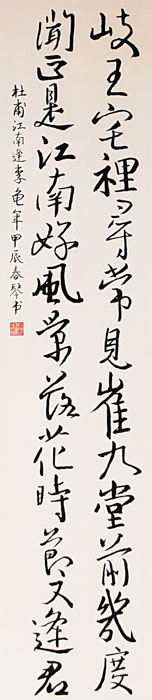 岐王宅裡尋常見崔九堂前幾度
聞正是江南好風景落花時節又逢君
杜甫江南逢李龜年甲辰春琴书